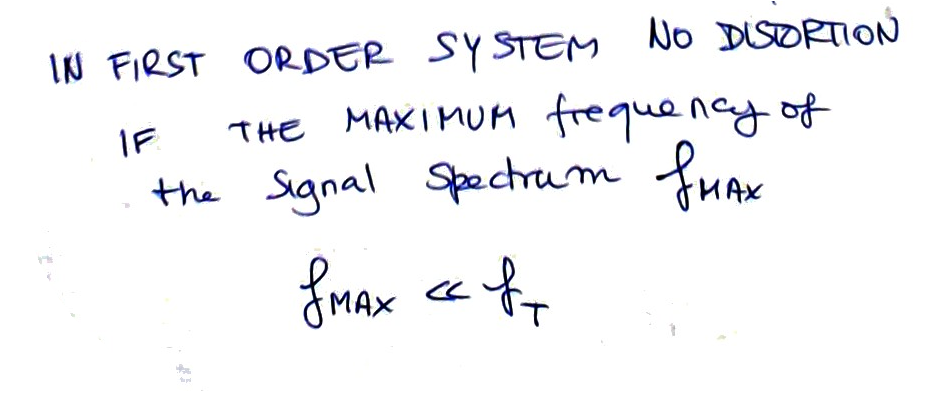 IN FIRST ORDER SYSTEM NO DISTORTION
IF THE MAXIMUM frequency of
the signal spectrum fMAX
fMAX << fT